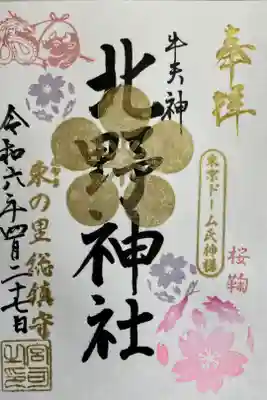 奉拝
東京ドーム天神様
桜鞠
牛天神
北野神社
東の里総鎮守
令和六年四月二十七日